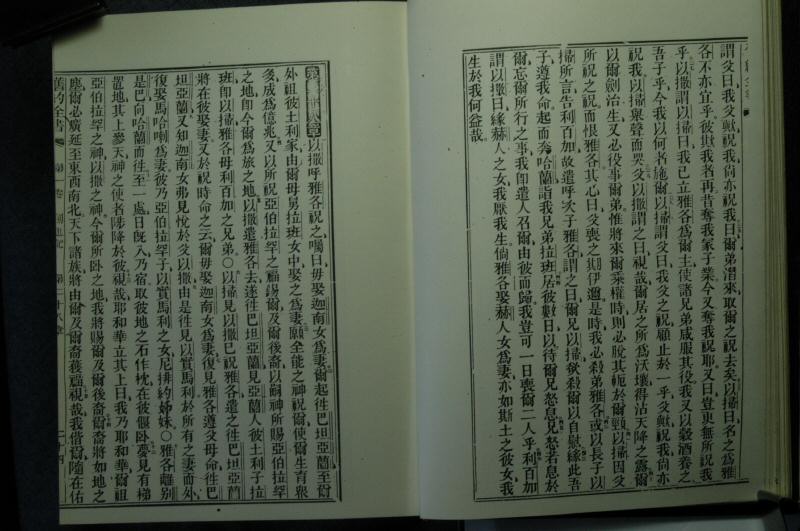 謂父曰我父歟祝我尚亦祝我曰爾弟潛來取爾之祝去矣以掃曰名之爲雅
各不亦宜乎彼欺我者再昔奪我家子業今又奪我祝耶又曰豈更無所祝我
乎以撒謂以掃曰我已立雅各爲爾主使諸兄弟咸服其役我又以穀酒養之
吾子乎今我以何者施爾以掃謂父曰我父之祝顧止於一乎父歟祝我尚亦
祝我以掃舉聲而哭父以撒謂之曰視哉爾居之所爲沃壤得沾天降之露爾
以爾劍治生又必役事爾弟惟將來爾乘權時則必脫其軛於爾頸以掃因父
所祝之祝而恨雅各其心曰父喪之期伊邇是時我必殺弟雅各或以長子以
掃所言告利百加故遣呼次子雅各謂之曰爾兄以掃欲殺爾以自慰緣此吾
子遵我命起而奔哈蘭詣我兄弟拉班居彼數日以待爾兄怒息兄怒若息於
爾忘爾所行之事我卽遣人召爾由彼而歸我豈可一日喪爾二人乎利百加
謂以撒曰緣赫人之女我厭我生倘雅各娶赫人女爲妻亦如斯土之彼女我
生於我何益哉
以撒呼雅各祝之囑曰毋娶迦南女爲妻爾起徃巴坦亞蘭至爾
外祖彼土利家由爾母舅拉班女中娶之爲妻願全能之神祝爾使爾生育衆
多成爲億兆又以所祝亞伯拉罕之福錫爾及爾後裔以嗣神所賜亞伯拉罕
之地卽今爾爲旅之地以撒遣雅各去遂徃巴坦亞蘭見亞蘭人彼土利子拉
班卽以掃雅各母利百加之兄弟○以掃見以撒已祝雅各遣之徃巴坦亞蘭
將在彼娶妻又於祝時命之云爾毋娶迦南女爲妻復見雅各遵父母命徃巴
坦亞蘭又知迦南女弗見悅於父以撒由是徃見以實馬利於所有之妻而外
復娶馬哈喇爲妻彼乃亞伯拉罕子以實馬利之女尼排約姊妹○雅各離別
是巴向哈蘭而徃至一處日旣入乃宿取彼地之石作枕在彼偃臥夢見有梯
置地其上參天神之使者陟降於彼視哉耶和華立其上曰我乃耶和華爾祖
亞伯拉罕之神以撒之神今爾所臥之地我將賜爾及爾後裔爾裔將如地之
塵爾必廣延至東西南北天下諸族將由爾及爾裔獲福視哉我偕爾隨在佑
舊約全書 第一卷 創世記 第二十八章 二十四